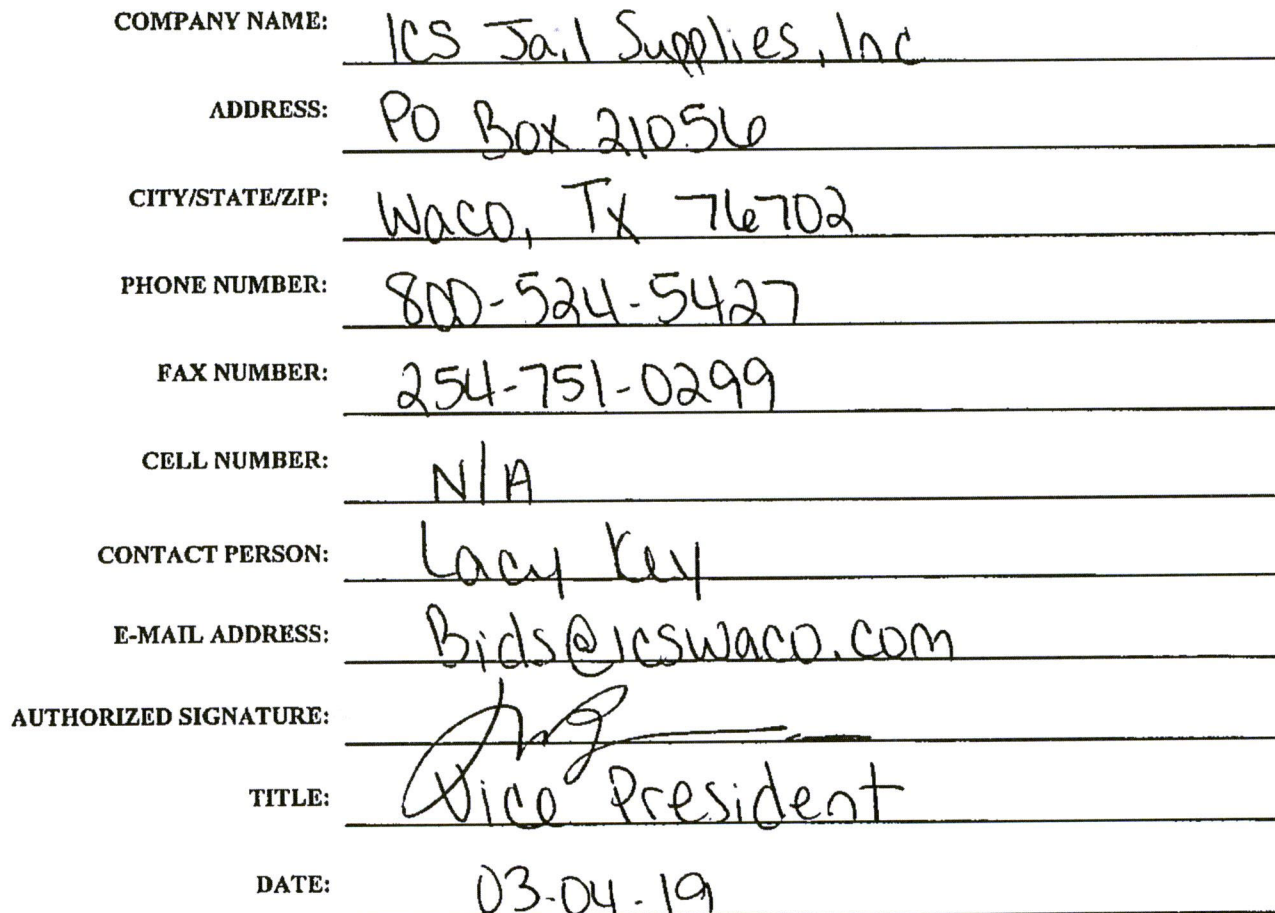 COMPANY NAME: ICS Jail Supplies, Inc
ADDRESS: PO Box 21056
CITY/STATE/ZIP: Waco, Tx 76702
PHONE NUMBER: 800-524-5427
FAX NUMBER: 254-751-0299
CELL NUMBER: N/A
CONTACT PERSON: Lacy Key
E-MAIL ADDRESS: Bids@icswaco.com
AUTHORIZED SIGNATURE:
TITLE: Vice President
DATE: 03-04-19